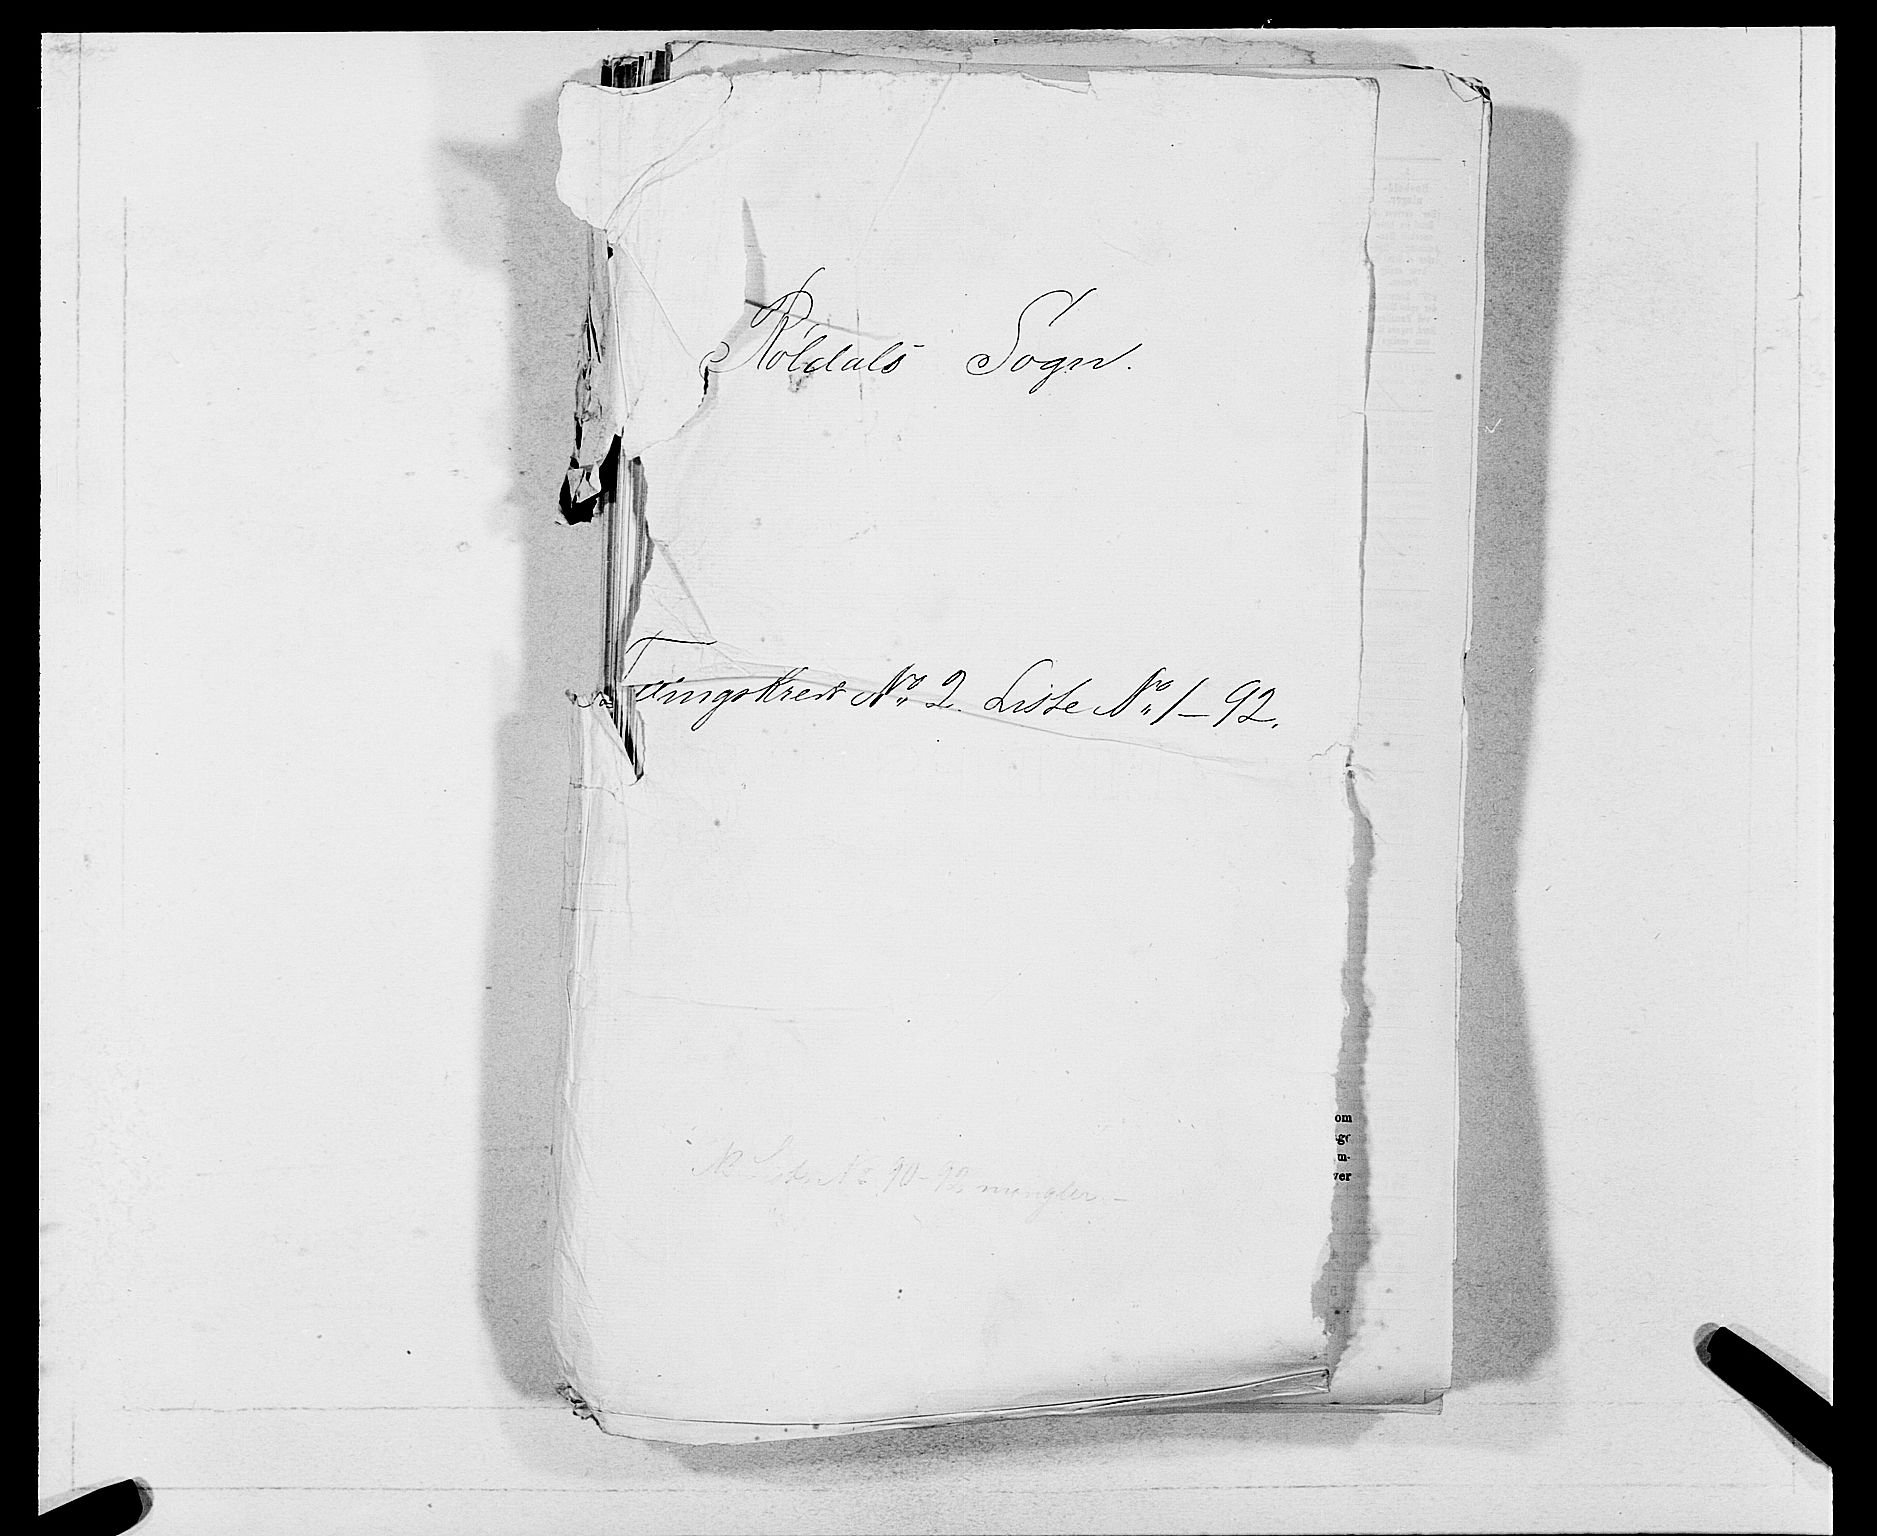 Røldals Sogn.
Tællingskreds No. 2. Liste No. 1–92.
NB Liste No 90–92 mangler.–
om
age
m-
ver